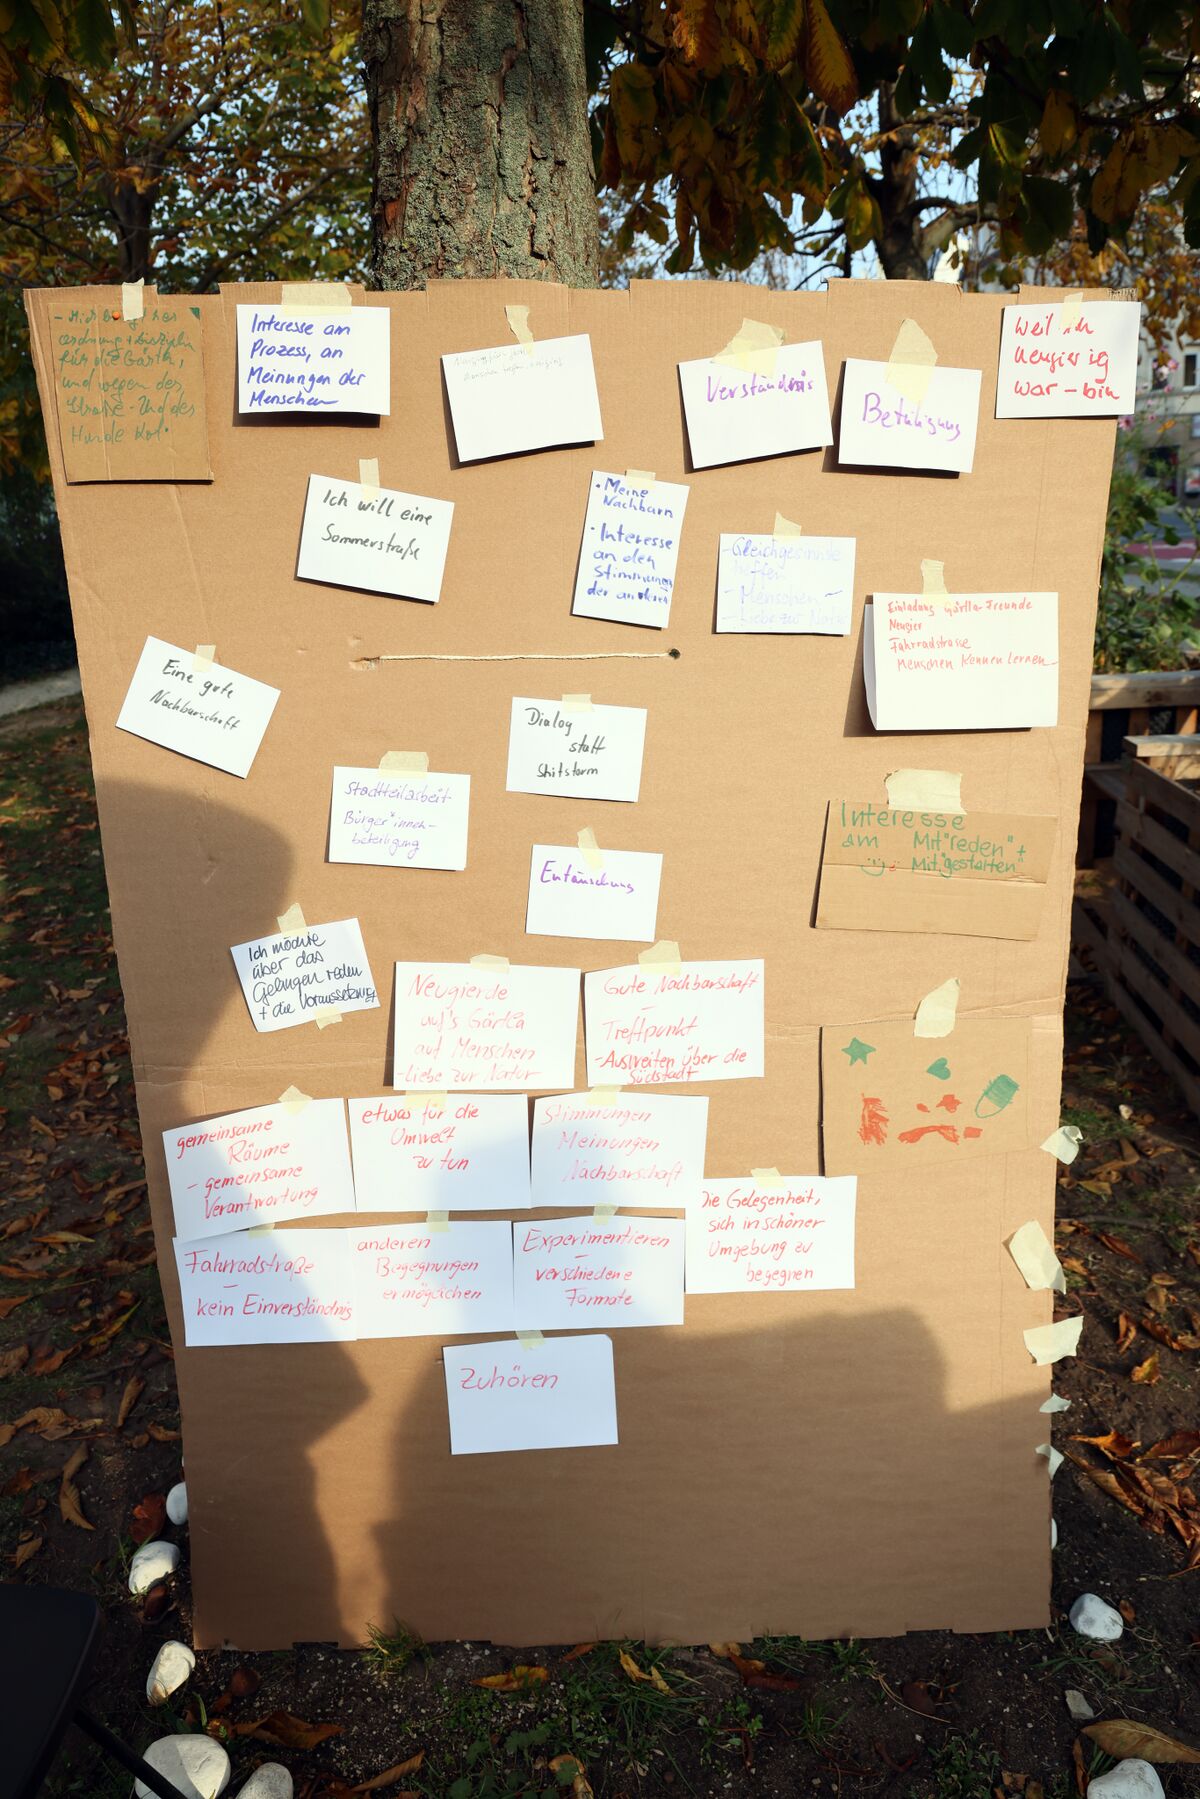 für die Gärten,
und wegen der
Straße - Und der
Hunde Kot.
Interesse am
Prozess, an
Meinungen der
Menschen
Verständnis
Beteiligung
weil ich
neugierig
war - bin
Ich will eine
Sommerstraße
• Meine
Nachbarn
• Interesse
an den
Stimmungen
der anderen
- Gleichgesinnte
treffen
- Menschen -
- Liebe zur Natur
Einladung Gärtla-Freunde
Neugier
Fahrradstrasse
Menschen kennen lernen
Eine gute
Nachbarschaft
Dialog
statt
Shitstorm
Stadtteilarbeit
Bürger*innen-
beteiligung
Interesse
am Mit"reden" +
Mit"gestalten"
Entäuschung
Ich möchte
über das
Gelingen reden
+ die Voraussetzung
Neugierde
auf's Gärtla
auf Menschen
- Liebe zur Natur
Gute Nachbarschaft
-
Treffpunkt
- Ausweiten über die
Südstadt
gemeinsame
Räume
- gemeinsame
Verantwortung
etwas für die
Umwelt
zu tun
Stimmungen
Meinungen
Nachbarschaft
Die Gelegenheit,
sich in schöner
Umgebung zu
begegnen
Fahrradstraße
-
kein Einverständnis
anderen
Begegnungen
ermöglichen
Experimentieren
-
verschiedene
Formate
Zuhören